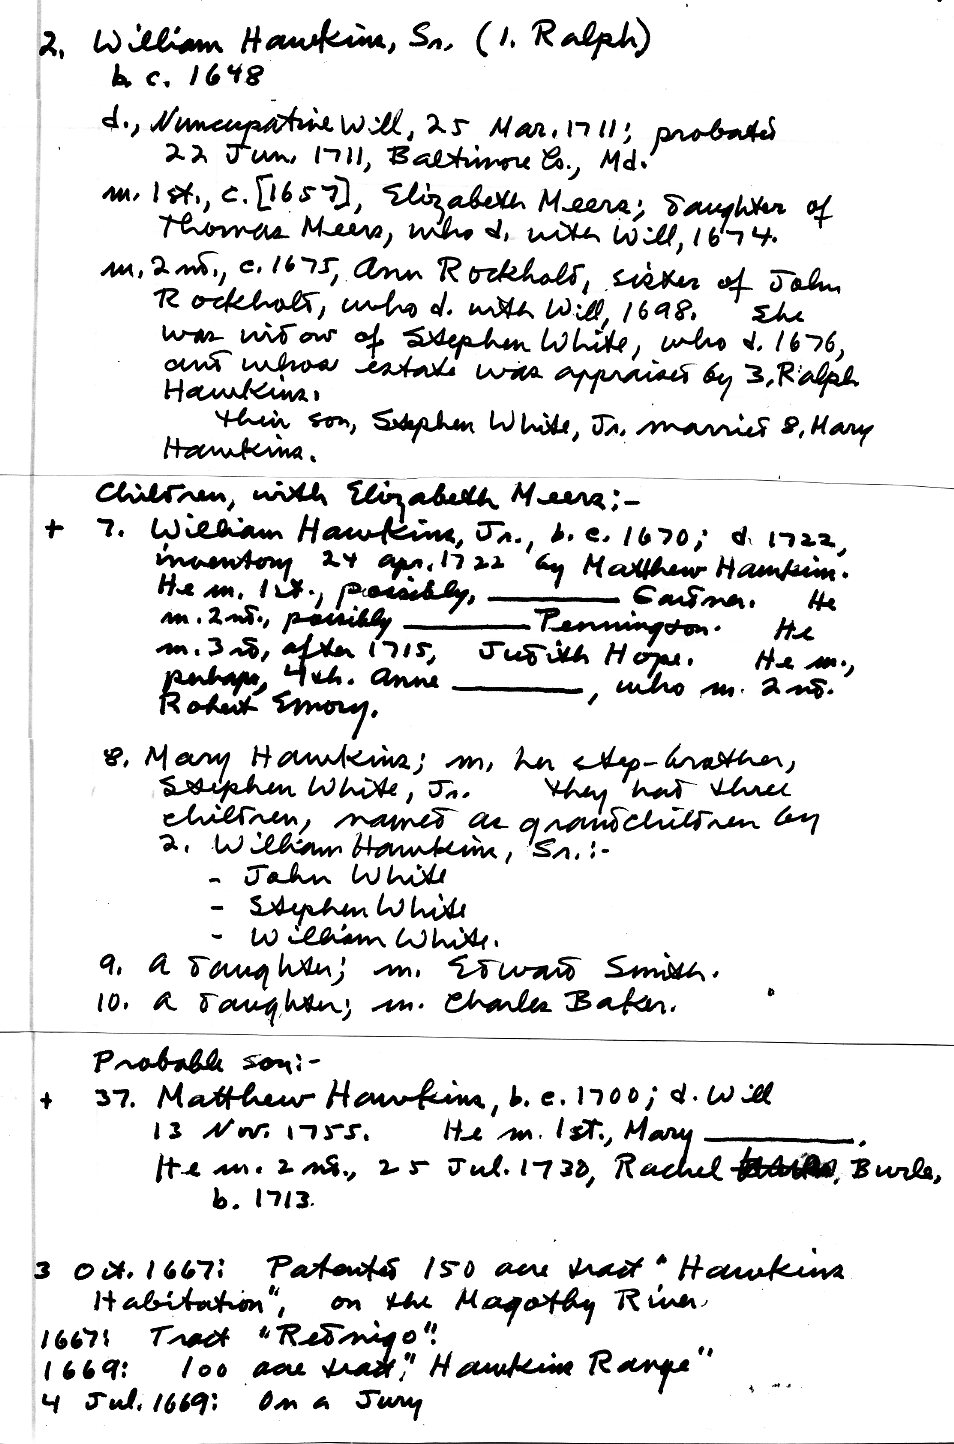 2. William Hawkins, Sr. (1. Ralph)
b. c. 1648
d., Nuncupative Will, 25 Mar. 1711; probated
22 Jun. 1711, Baltimore Co., Md.
m. 1st., c. [1657], Elizabeth Meers; daughter of
Thomas Meers, who d. with Will, 1674.
m. 2nd., c. 1675, Ann Rockhold, sister of John
Rockhold, who d. with Will, 1698. She
was widow of Stephen White, who d. 1676,
and whose estate was appraised by 3. Ralph
Hawkins.
Their son, Stephen White, Jr. married 8. Mary
Hawkins.
Children, with Elizabeth Meers:-
+ 7. William Hawkins, Jr., b. c. 1670; d. 1722,
inventory 24 Apr. 1722 by Matthew Hawkins.
He m. 1st., possibly, ______ Gardner. He
m. 2nd., possibly ______ Pennington. He
m. 3rd, after 1715, Judith Hope. He m.,
perhaps, 4th. Anne ______, who m. 2nd.
Robert Emory.
8. Mary Hawkins; m. her step-brother,
Stephen White, Jr. They had three
children, named as grandchildren by
2. William Hawkins, Sr.:-
- John White
- Stephen White
- William White.
9. A daughter; m. Edward Smith.
10. A daughter; m. Charles Baker.
Probable son:-
+ 37. Matthew Hawkins, b. c. 1700; d. Will
13 Nov. 1755. He m. 1st., Mary ______.
He m. 2nd., 25 Jul. 1730, Rachel Burle,
b. 1713.
3 Oct. 1667: Patented 150 acre tract "Hawkins
Habitation", on the Magothy River.
1667: Tract "Rednigo".
1669: 100 acre tract, "Hawkins Range"
4 Jul. 1669: On a Jury